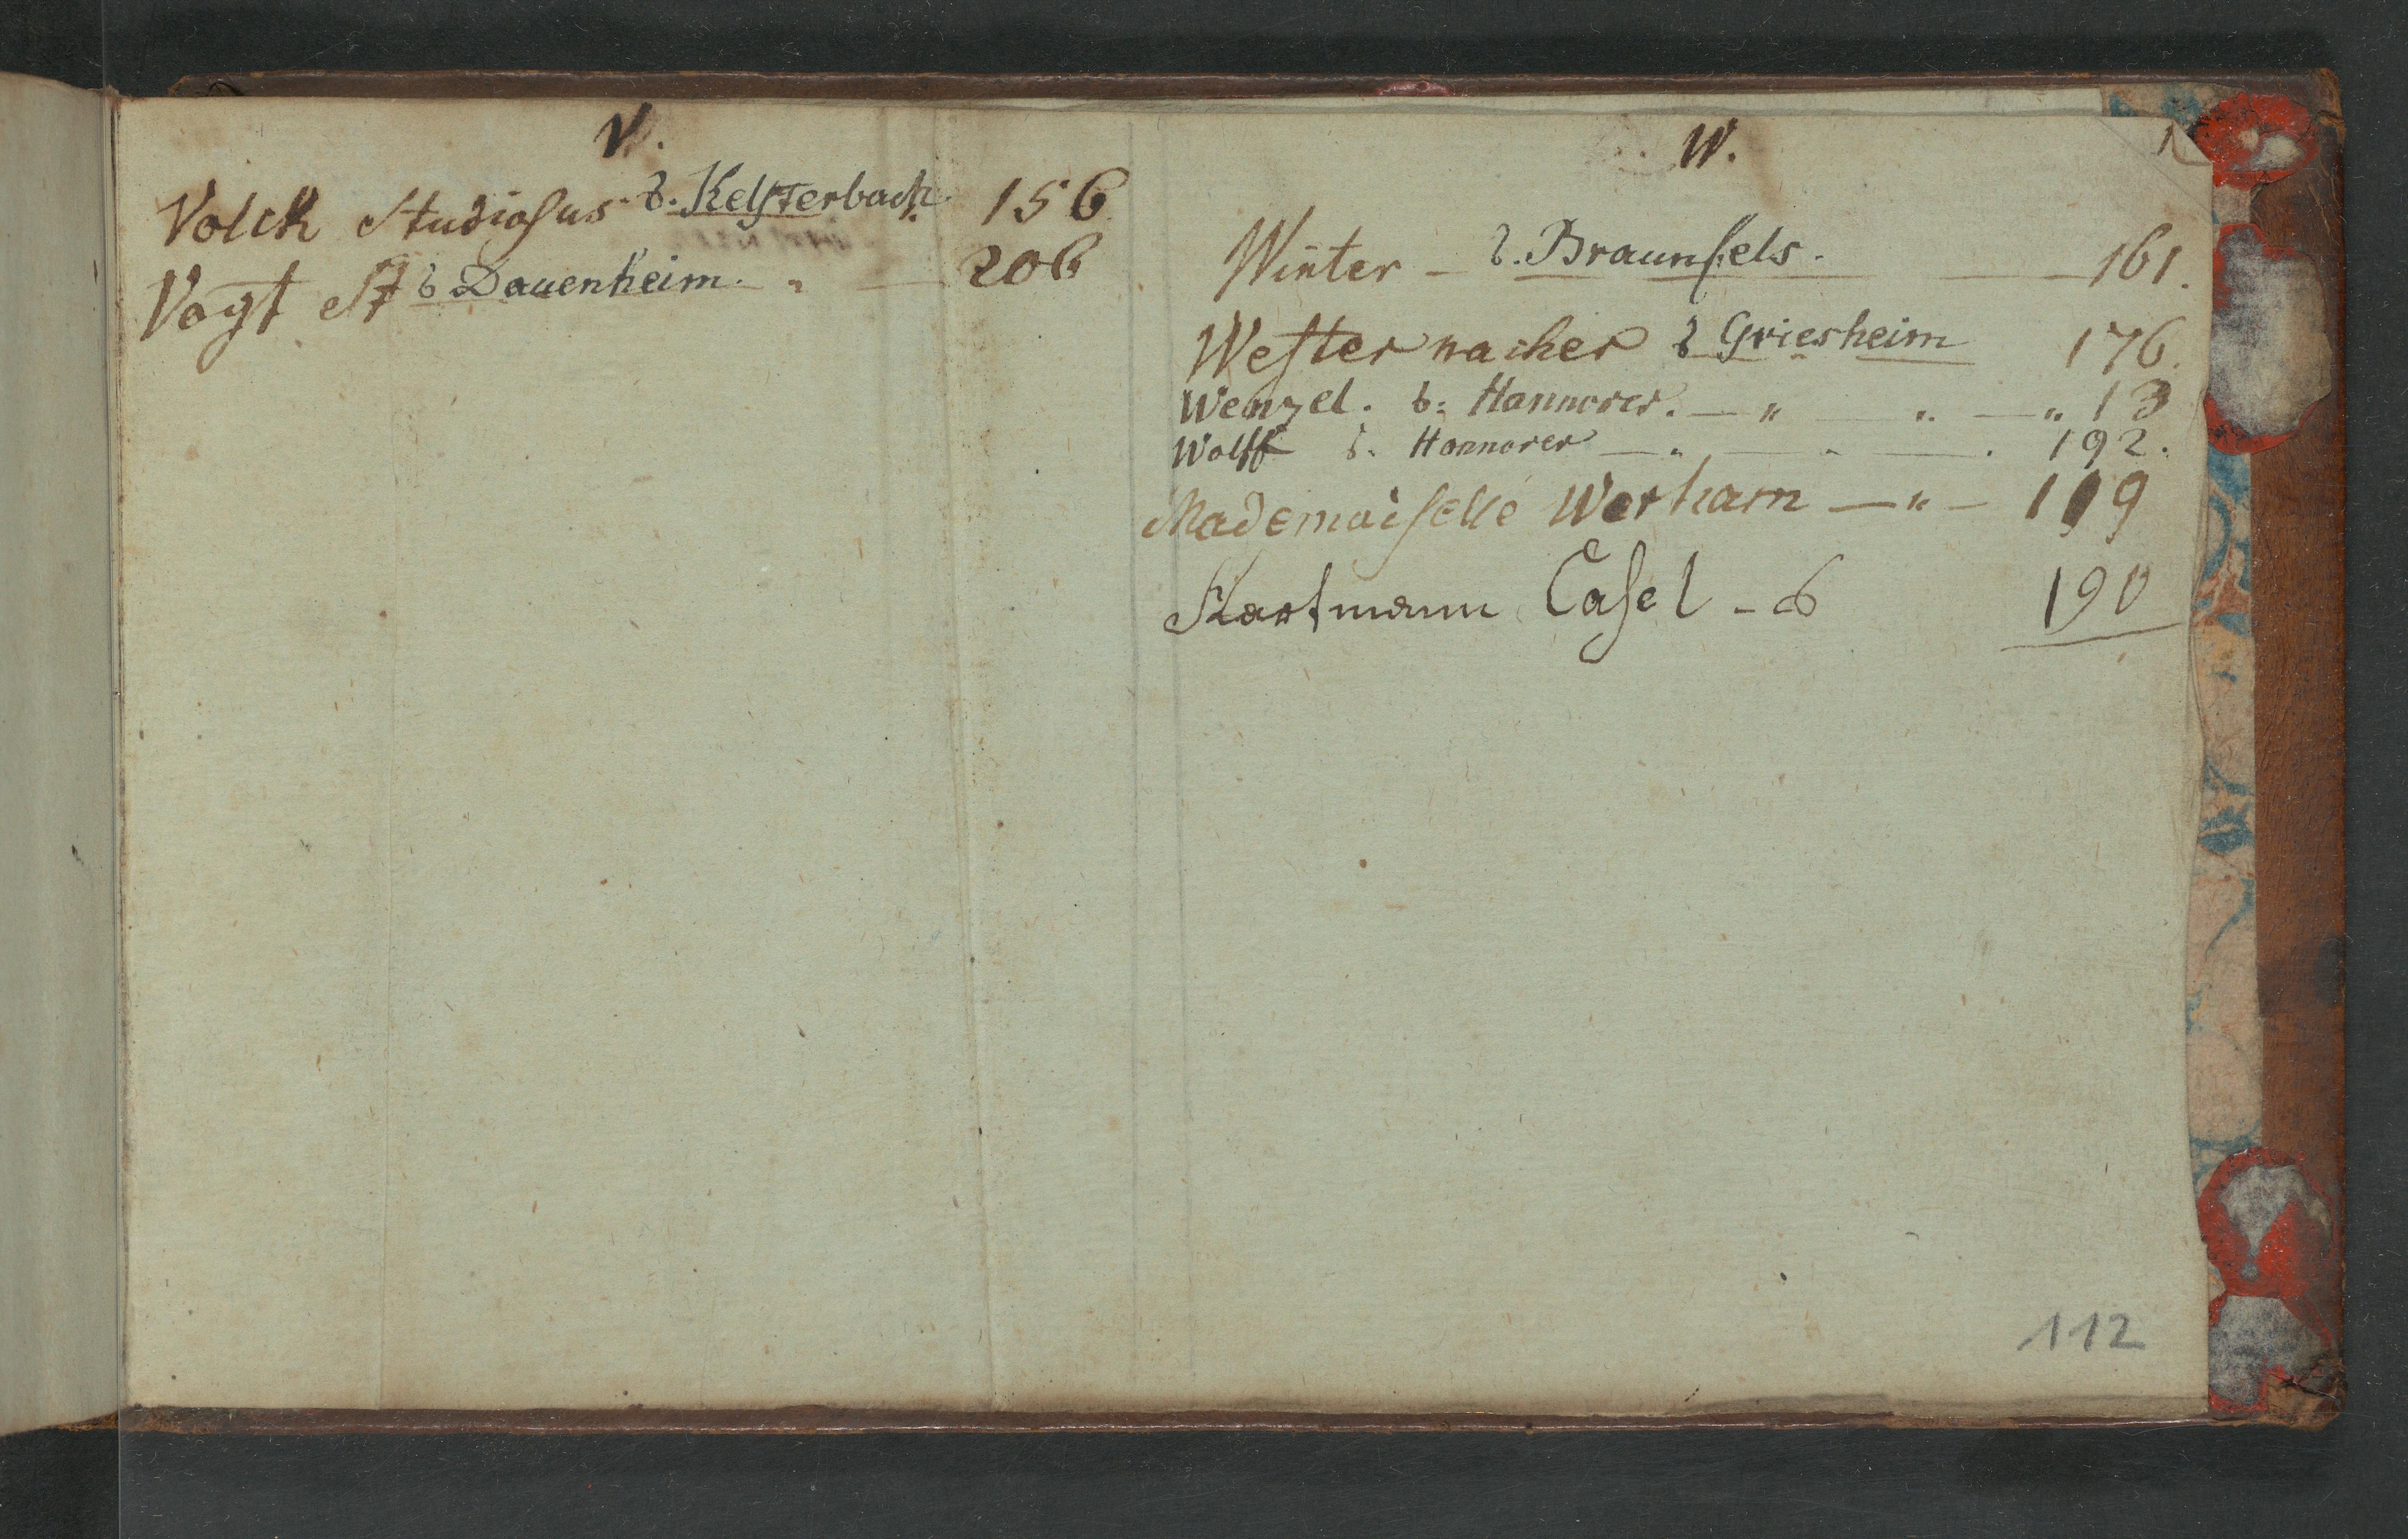 V.
Volck Studiosus b. Kelsterbach. 156.
Vogt St b Dauenheim. " 206
W.
Winter - b. Braunfels. 161.
Westernacher b Griesheim 176.
Wenzel. b: Hannover. — " — " — " 13
Wolff b. Hannover — " — " — . 192.
Mademoiselle Werham — " — 119
Hartmann Casel - b 190
112